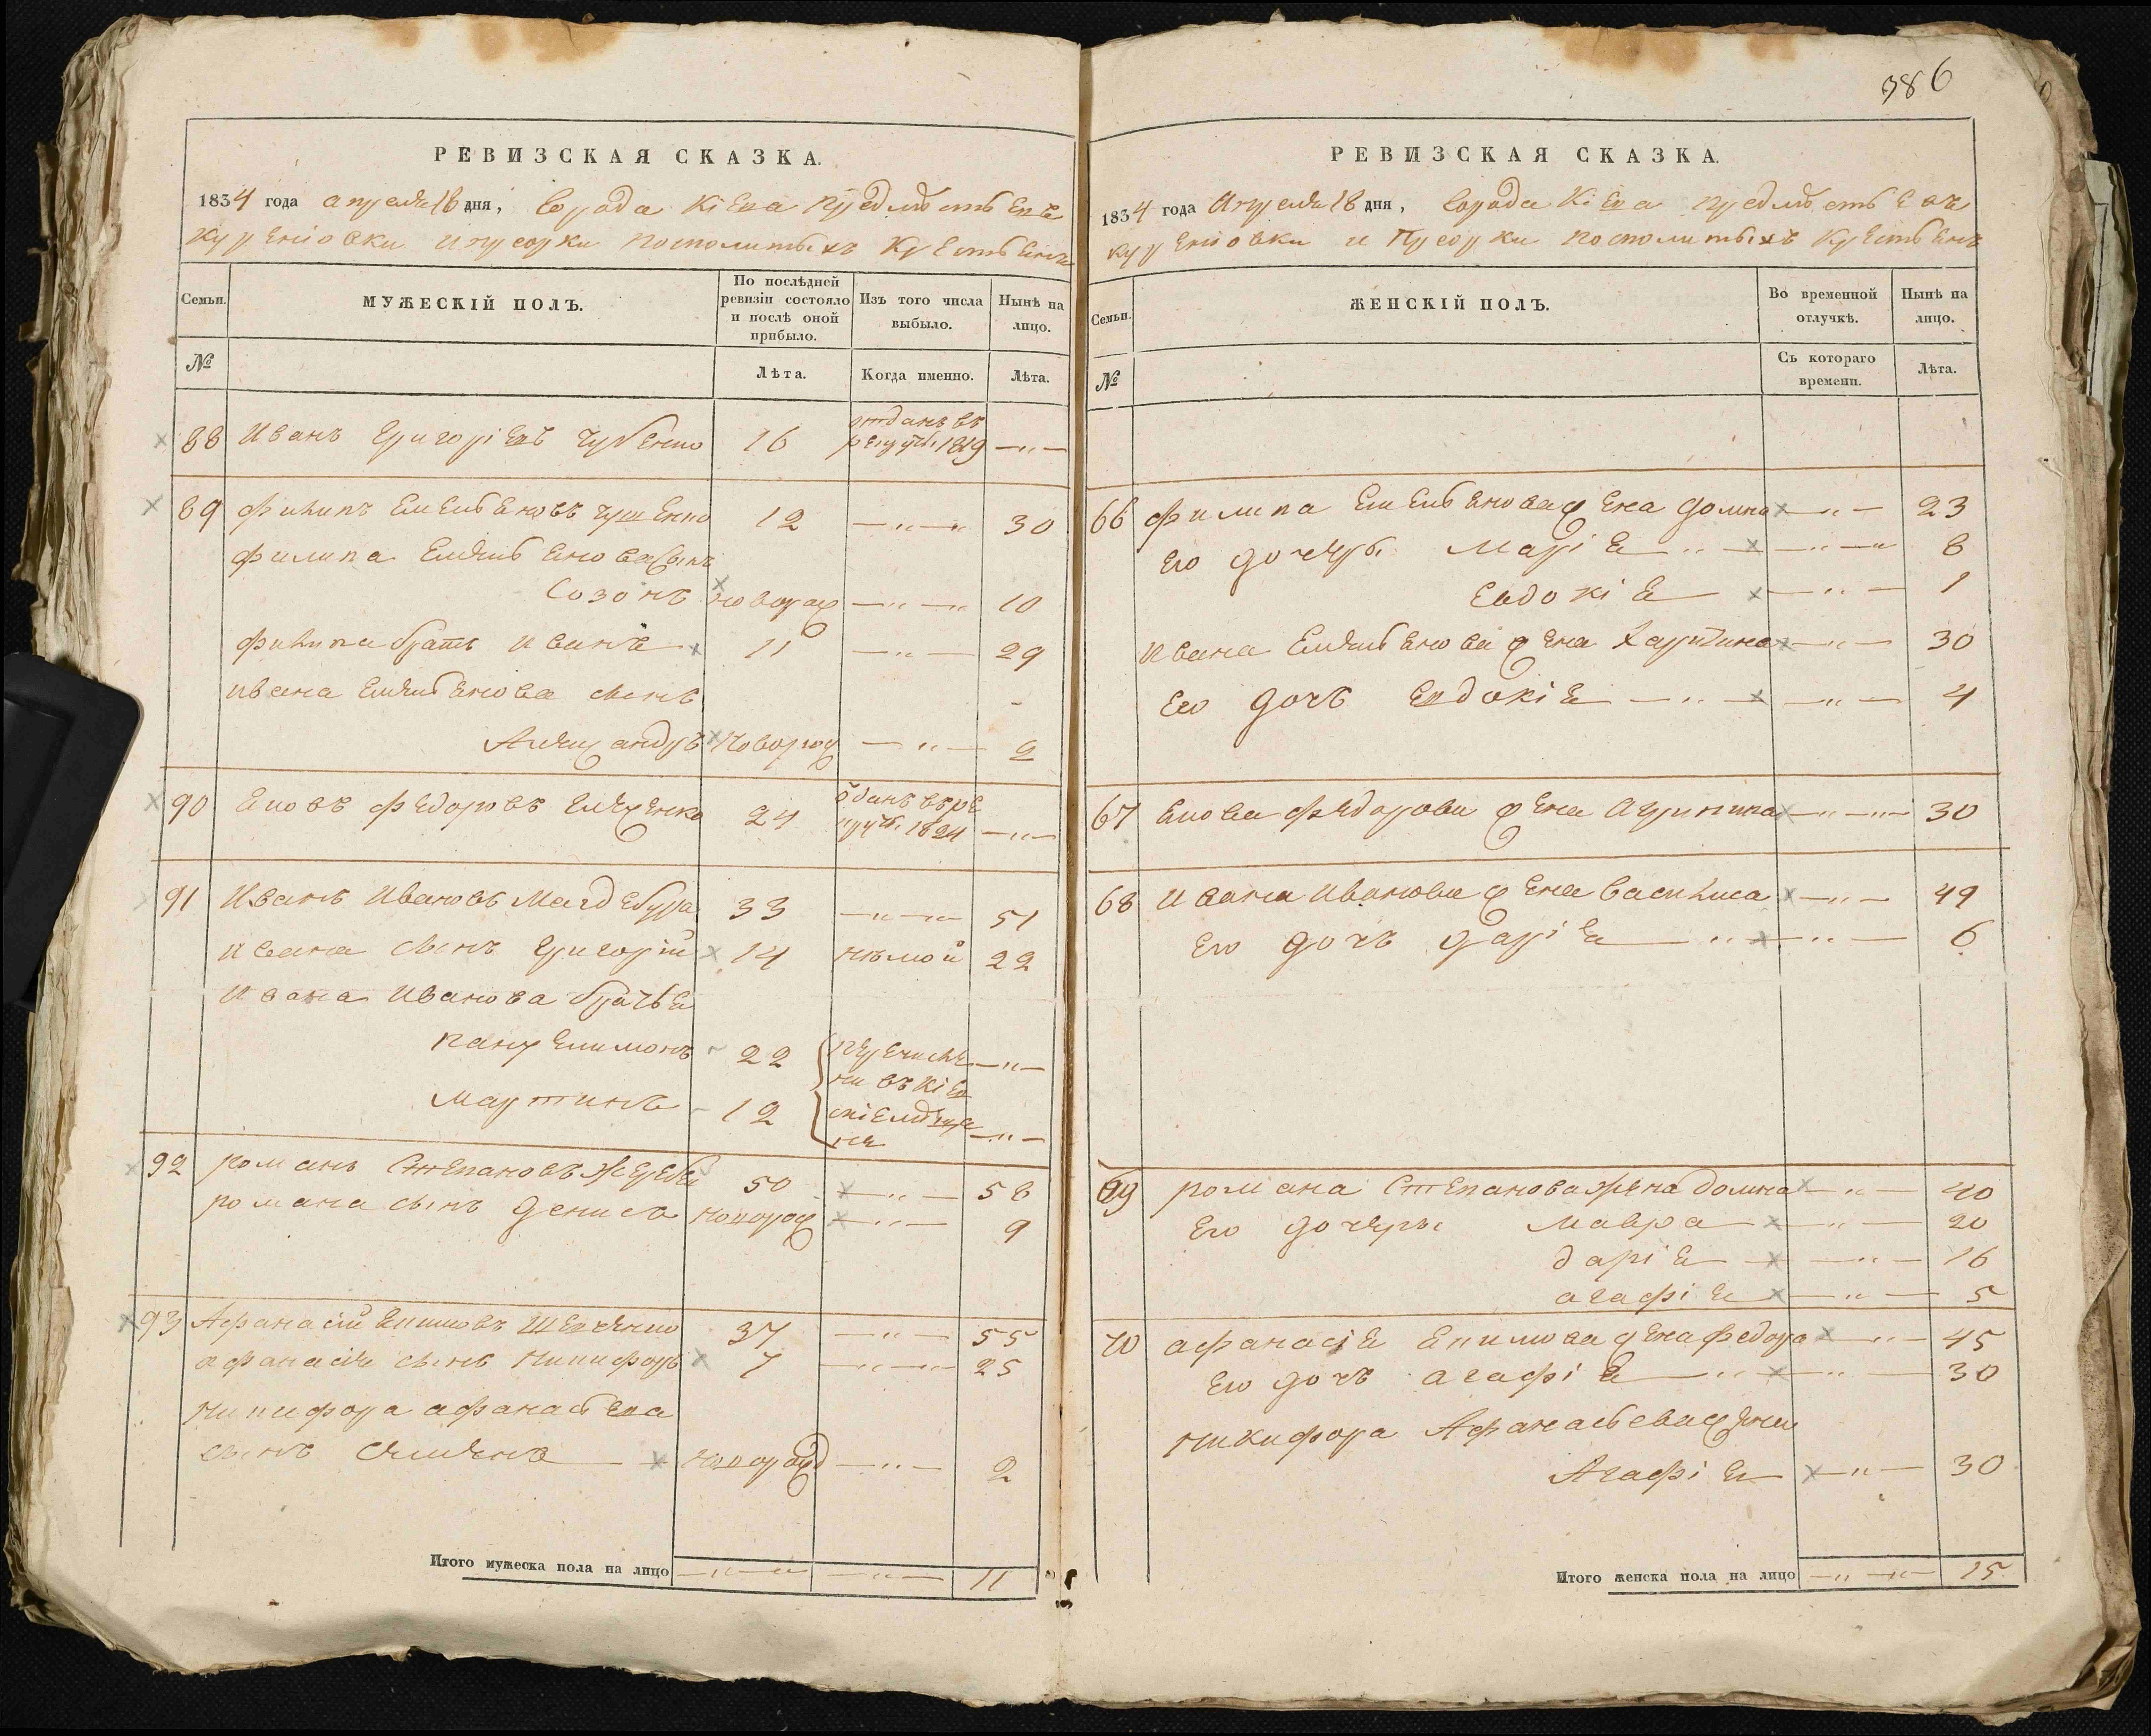 РЕВИЗСКАЯ СКАЗКА.
1834 года апреля 18 дня, города Кіева предмѣстьевъ
Куреніовки и Пріорки посполитыхъ крестьянъ
Семьи.
МУЖЕСКІЙ ПОЛЪ.
По послѣдней ревизіи состояло и послѣ оной прибыло.
Изъ того числа выбыло.
Нынѣ на лицо.
№
Лѣта.
Когда именно.
Лѣта.
88 Иванъ Григоріевъ 16 отданъ въ рекруты 1819 —〃—
89 Филипъ Емельяновъ 12 —〃— 30
Филипа Емельянова сынъ
Созонъ новорож —〃— 10
Филипа братъ Иванъ 11 —〃— 29
Ивана Емельянова сынъ
Александръ новорож —〃— 2
90 Яковъ Федоровъ 24 о̄данъ въ рекруты 1824 —〃—
91 Иванъ Ивановъ Магдебура 33 —〃— 51
Ивана сынъ Григорій 14 нѣмой 22
Ивана Иванова братья
Пантелимонъ 22 перечислены въ Кіевскіе мѣщане —〃—
Мартинъ 12 —〃—
92 Романъ Степановъ Жеребей 50 —〃— 58
Романа сынъ Денисъ новорож —〃— 9
93 Афанасій Екимовъ Шевченко 37 —〃— 55
Афанасія сынъ Никифоръ 7 —〃— 25
Никифора Афанасьева
сынъ Семенъ новорожд —〃— 2
Итого мужеска пола на лицо —〃— —〃— 11
386
РЕВИЗСКАЯ СКАЗКА.
1834 года Апреля 18 дня, города Кіева предмѣстьевъ
Куреніовки и Пріорки посполитыхъ крестьянъ
Семьи.
ЖЕНСКІЙ ПОЛЪ.
Во временной отлучкѣ.
Нынѣ на лицо.
№
Съ котораго времени.
Лѣта.
66 Филипа Емельянова жена Домна —〃— 23
Его дочеры Марія —〃— 8
Евдокія —〃— 1
Ивана Емельянова жена Харитина —〃— 30
Его дочь Евдокія —〃— 4
67 Якова Федорова жена Агрипина —〃— 30
68 Ивана Иванова жена Василиса —〃— 49
Его дочь Дарія —〃— 6
69 Романа Степанова жена Домна —〃— 40
Его дочеры Мавра —〃— 20
Дарія —〃— 16
Агафія —〃— 5
70 Афанасія Екимова жена Федора —〃— 45
Его дочь Агафія —〃— 30
Никифора Афанасьева жена
Агафія —〃— 30
Итого женска пола на лицо —〃— 15